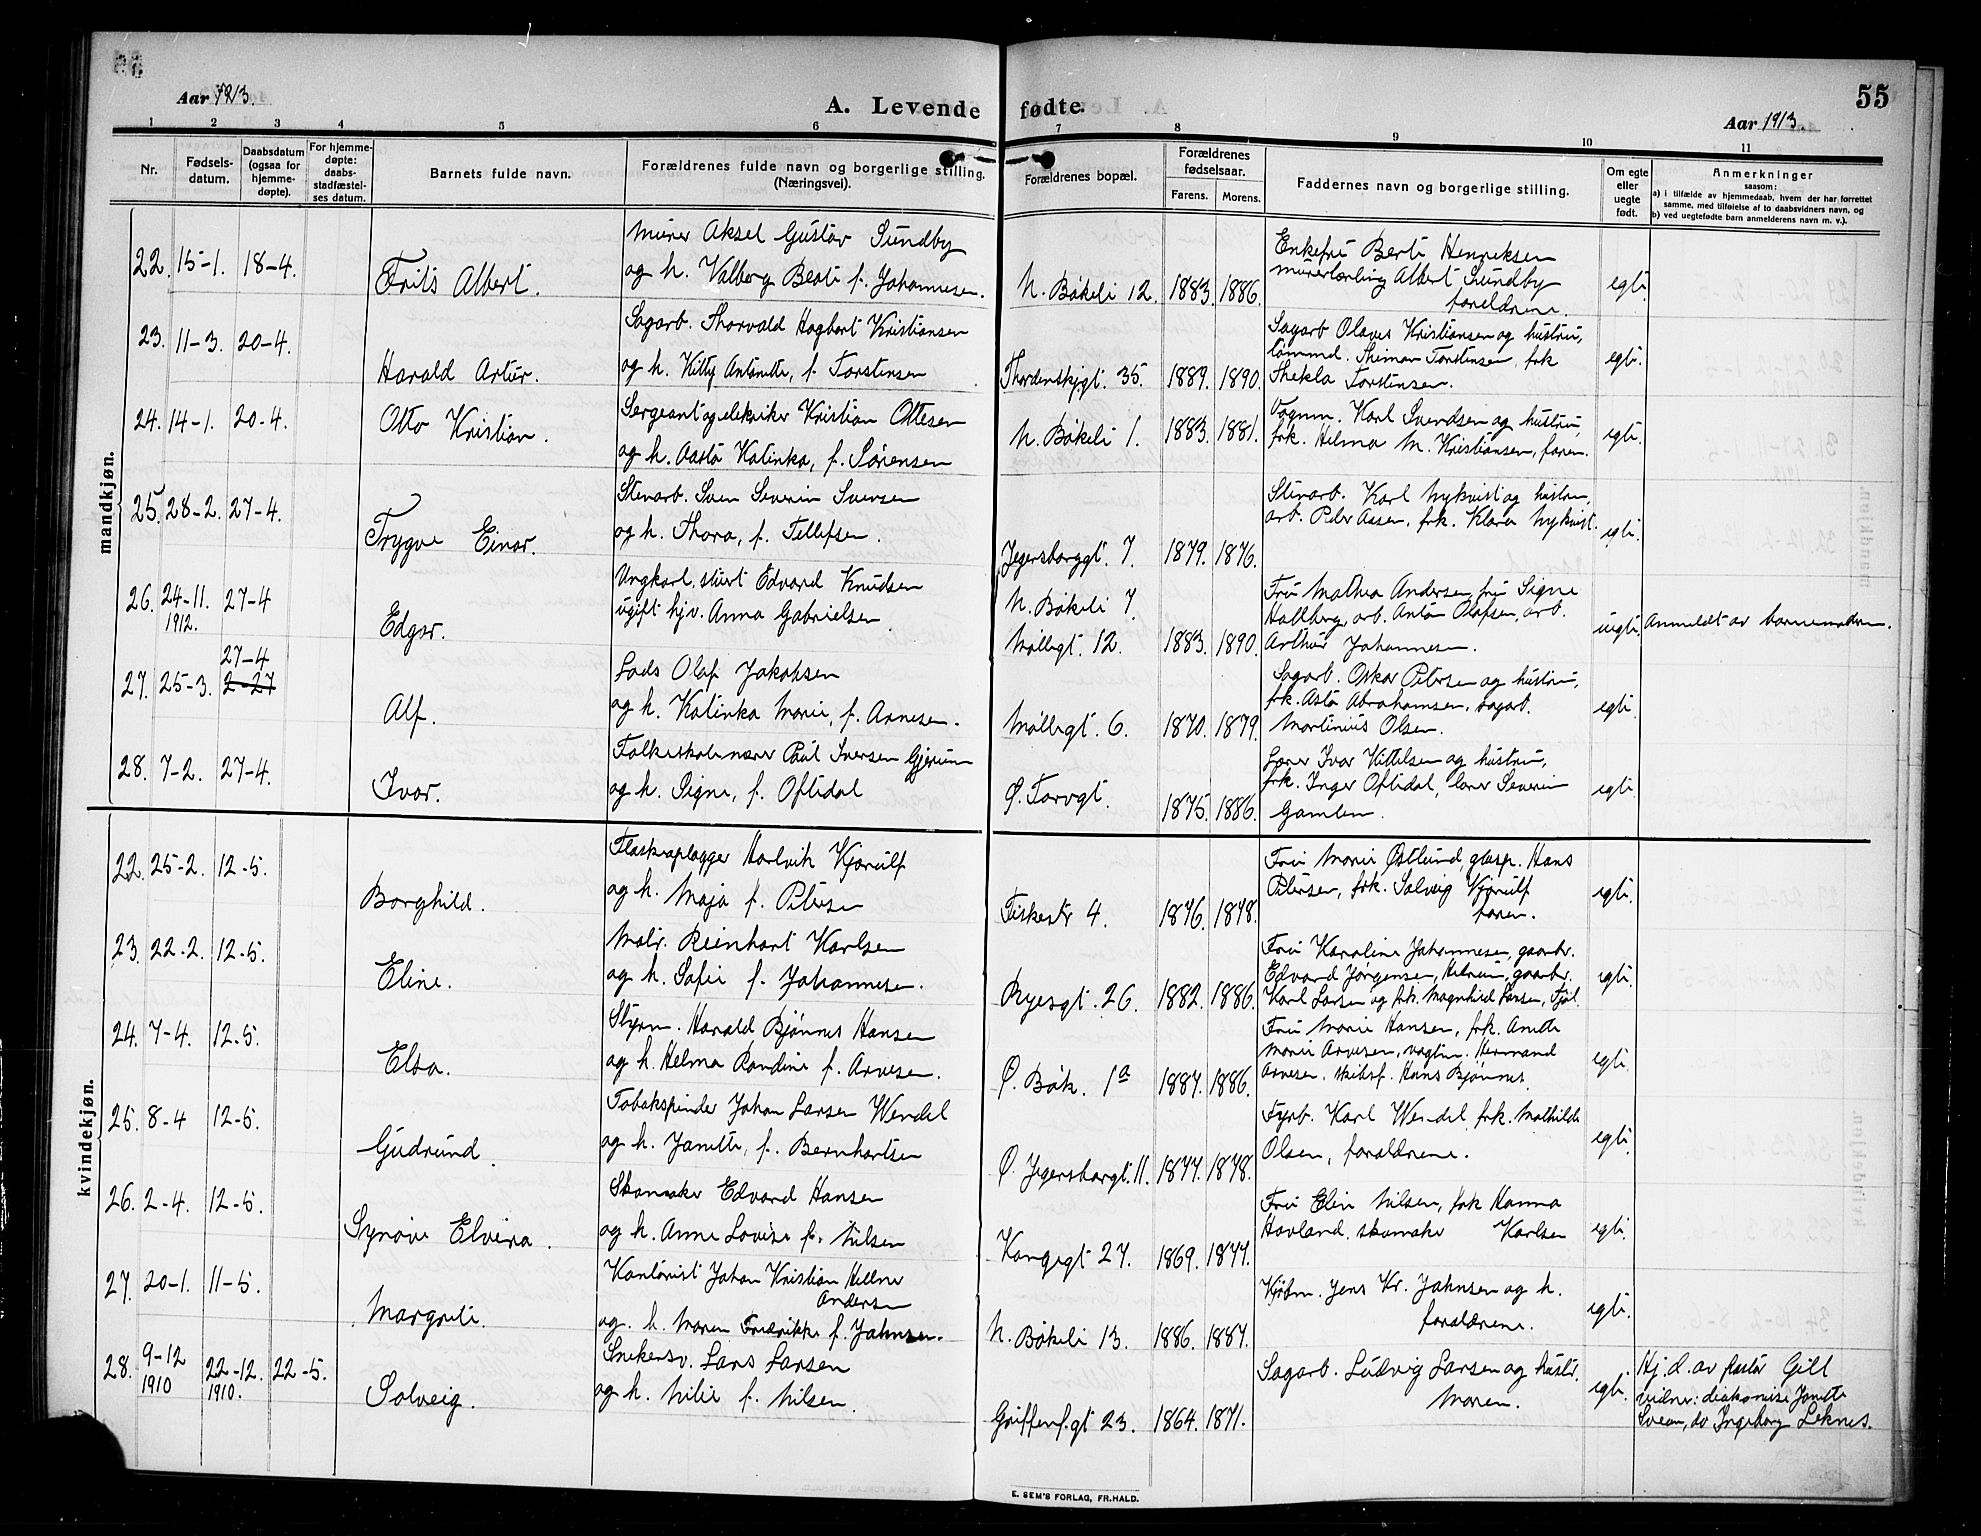 Aar 1913.
A. Levende fødte.
55
Aar 1913.
1 2 3 4 5 6 7 8 9 10 11
Nr.
Fødsels-
datum.
Daabsdatum
(ogsaa for
hjemme-
døpte).
For hjemme-
døpte:
daabs-
stadfæstel-
ses datum.
Barnets fulde navn.
Forældrenes fulde navn og borgerlige stilling.
(Næringsvei).
Forældrenes bopæl.
Forældrenes
fødselsaar.
Farens. Morens.
Faddernes navn og borgerlige stilling.
Om egte
eller
uegte
født.
Anmerkninger
saasom:
a) i tilfælde av hjemmedaab, hvem der har forrettet
samme, med tilføielse af to daabsvidners navn, og
b) ved uegtefødte barn anmelderens navn m. v.).
mandkjøn.
22. 15-1. 18-4. Frits Albert.
Murer Aksel Gustav Sundby
og h. Valborg Beate f. Johannesen.
N. Bökeli 12. 1883. 1886.
Enkefru Berte Henriksen
murerlærling Albert Sundby
forældrene.
egte.
23. 11-3. 20-4. Harald Artur.
Sagarb. Thorvald Hagbart Kristiansen
og h. Kitty Antonette, f. Torstensen
Thordenskjgt. 35. 1889. 1890.
Sagarb Olaves Kristiansen og hustru,
tømmd. Thiman Torstensen, frk
Thekla Torstensen.
egte.
24. 14-1. 20-4. Otto Kristian.
Sergeant og elektriker Kristian Ottesen
og h. Aasta Kalinka, f. Sørensen
N. Bökeli 1. 1883. 1881.
Vognm. Karl Svendsen og hustru,
frk. Helma M. Kristiansen, faren.
egte.
25. 28-2. 27-4. Trygve Einar.
Stenarb. Sven Severin Iversen
og h. Thora, f. Tellefsen.
Jegersborggt. 7. 1879. 1876.
Stenarb. Karl Nykvist og hustru,
arb. Peder Aasen, frk. Klara Nykvist.
egte.
26. 24-11. 1912. 27-4 Edgar.
Ungkarl, stuert Edvard Knudsen
ugift hjv. Anna Gabrielsen
N. Bökeli 7
Møllegt. 12. 1883. 1890.
Fru Mathea Andersen, fru Signe
Hallberg, arb. Anton Olafsen, arb.
Arthur Johannesen.
uegte. Anmeldt av barnemoderen.
27. 25-3. 27-4
2-27
Alf.
Lods Olaf Jakobsen
og h. Kalinka Marie, f. Arnesen.
Møllegt. 6. 1870. 1879.
Sagarb. Oskar Petersen og hustru,
frk. Asta Abrahamsen, sagarb.
Martinius Olsen.
egte.
28. 7-2. 27-4. Ivar.
Folkeskolelærer Paul Iversen Gjerum
og h. Signe, f. Oftedal
Ø. Torvgt. 1875. 1886.
Lærer Ivar Kittelsen og hustru,
frk. Inger Oftedal, lærer Severin
Gamlem.
egte.
kvindekjøn.
22. 25-2. 12-5. Borghild.
Flaskeaplægger Hartvik Kjerulf
og h. Maja f. Petersen
Fiskestr 4. 1876. 1878.
Fru Marie Østlund, glasp. Hans
Petersen, frk. Solveig Kjerulf
faren.
egte.
23. 22-2. 12-5. Eline.
Matr. Reinhart Karlsen
og h. Sofie f. Johannesen.
Ryesgt. 26. 1882. 1886.
Fru Karoline Johannesen, gaarbr.
Edvard Jørgensen, Helneim, gaarbr.
Karl Larsen og frk. Magnhild Larsen, Tjøl.
egte.
24. 7-4. 12-5. Elsa.
Styrm. Harald Bjønnes Hansen
og h. Helma Randine f. Arvesen.
Ø. Bøk. 1a 1887. 1886.
Fru Marie Hansen, frk. Anette
Marie Arvesen, vogtm. Hermand
Arvesen, skibsf. Hans Bjønnes.
egte.
25. 8-4 12-5. Gudrund.
Tobakspinder Johan Larsen Wendel
og h. Janette, f. Bernhartsen
Ø. Jegersborgt. 11. 1877. 1878.
Fyrb. Karl Wendel frk. Mathilde
Olsen, forældrene.
egte.
26. 2-4. 12-5. Synøve Elvira.
Skomaker Edvard Hansen
og h. Anne Lovise f. Nilsen
Kongegt 27. 1869. 1877.
Fru Elin Nilsen, frk Hanna
Hovland, skomaker Karlsen
egte.
27. 20-1. 11-5. Margrete.
Kontorist Johan Kristian Hellner
Andersen
og. h. Maren Fredrikke f. Johnsen.
N. Bökeli 13. 1886. 1887.
Kjøbm. Jens Kr. Johnsen og h.
forældrene.
egte.
28. 9-12 1910 22-12. 1910. 22-5. Solveig.
Snekersv. Lars Larsen
og h. Milie f. Nilsen.
Griffenf.gt 23. 1864. 1871.
Sagarb. Ludvig Larsen og hustr.
Moren.
egte.
Hj. d. av pastor Gill
vidner: diakonisse Janette
Sveen, do Ingeborg Leknes.
E. SEM'S FORLAG, FR.HALD.